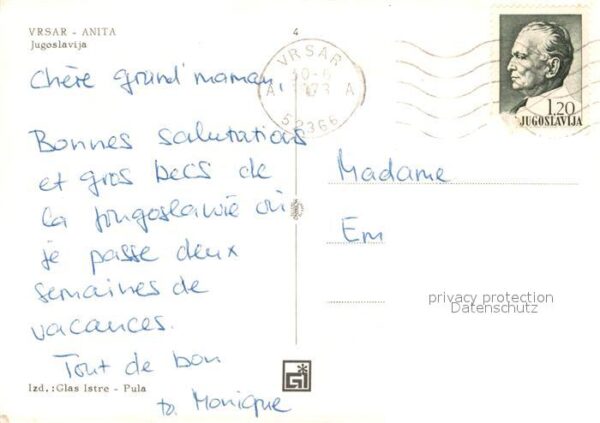 VRSAR - ANITA
Jugoslavija
4
Chère grand'maman,
Bonnes salutations
et gros becs de
la jougoslawie où
je passe deux
semaines de
vacances.
Tout de bon
ta Monique
Izd.:Glas Istre - Pula
VRSAR
A A
52366
1.20
JUGOSLAVIJA
Madame
Em
privacy protection
Datenschutz